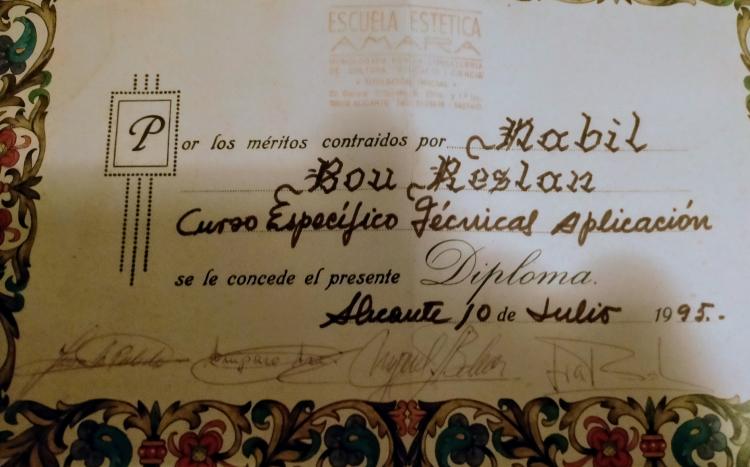 ESCUELA ESTETICA
AMARA
Por los méritos contraidos por Nabil
Bou Reslan
Curso Específico Técnicas Aplicación
se le concede el presente Diploma.
Alicante 10 de Julio 1995.-